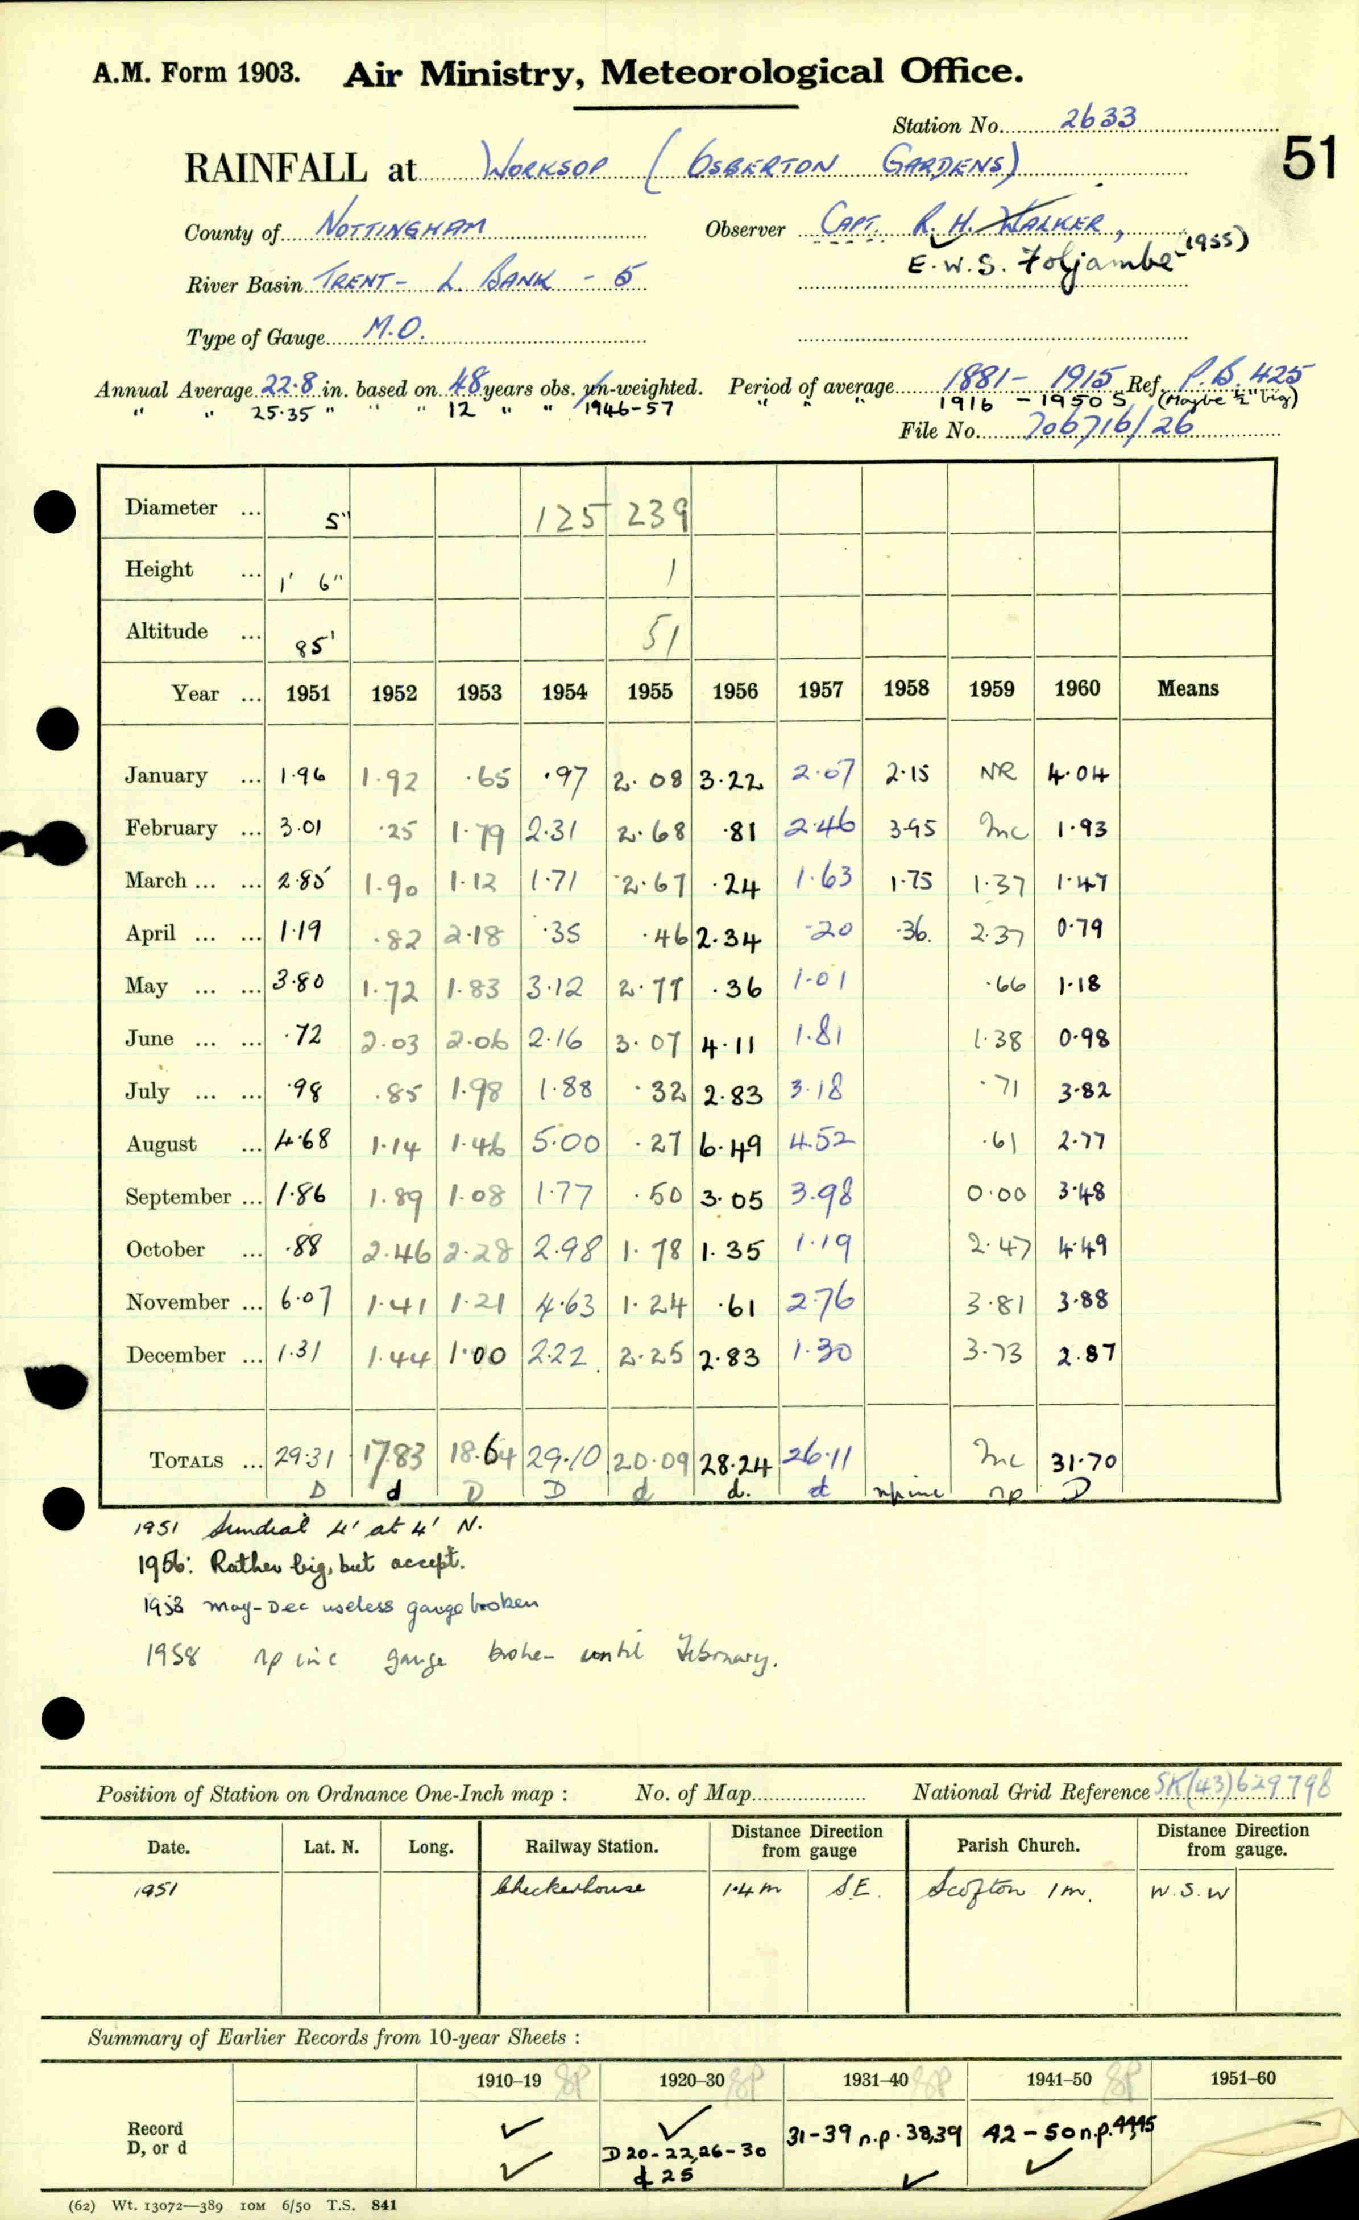 A.M. Form 1903. Air Ministry, Meteorological Office.
Station No. 2633
51
RAINFALL at WORKSOP (OSBERTON GARDENS)
County of NOTTINGHAM Observer CAPT. R. H. WALKER,
E.W.S. Foljambe (1955)
River Basin TRENT - L. BANK - 5
Type of Gauge M.O.
Annual Average 22.8 in. based on 48 years obs. un-weighted. Period of average 1881 - 1915 Ref. P.B. 425
" " 25.35 " " " 12 " " 1946-57 " " " 1916 - 1950 S (Maybe ½" big)
File No. 706716/26
Diameter ... 5" 125 239
Height ... 1' 6" 1
Altitude ... 85' 51
Year ... 1951 1952 1953 1954 1955 1956 1957 1958 1959 1960 Means
January ... 1.96 1.92 .65 .97 2.08 3.22 2.07 2.15 NR 4.04
February ... 3.01 .25 1.79 2.31 2.68 .81 2.46 3.95 Inc 1.93
March ... ... 2.85 1.90 1.12 1.71 2.67 .24 1.63 1.75 1.37 1.47
April ... ... 1.19 .82 2.18 .35 .46 2.34 .20 .36. 2.37 0.79
May ... ... 3.80 1.72 1.83 3.12 2.77 .36 1.01 .66 1.18
June ... ... .72 2.03 2.06 2.16 3.07 4.11 1.81 1.38 0.98
July ... ... .98 .85 1.98 1.88 .32 2.83 3.18 .71 3.82
August ... 4.68 1.14 1.46 5.00 .27 6.49 4.52 .61 2.77
September ... 1.86 1.89 1.08 1.77 .50 3.05 3.98 0.00 3.48
October ... .88 2.46 2.28 2.98 1.78 1.35 1.19 2.47 4.49
November ... 6.07 1.41 1.21 4.63 1.24 .61 2.76 3.81 3.88
December ... 1.31 1.44 1.00 2.22 2.25 2.83 1.30 3.73 2.87
TOTALS ... 29.31 17.83 18.64 29.10 20.09 28.24 26.11 Inc 31.70
D d D D d d. d np inc np D
1951 Sundial 4' at 4' N.
1956: Rather big, but accept.
1958 May-Dec useless gauge broken
1958 np inc gauge broken until February.
Position of Station on Ordnance One-Inch map : No. of Map National Grid Reference SK(43)629798
Date. Lat. N. Long. Railway Station. Distance from gauge Direction Parish Church. Distance from gauge. Direction
1951 Checkerhouse 1.4 m S.E. Scofton 1 m. W.S.W
Summary of Earlier Records from 10-year Sheets :
1910-19 SP 1920-30 SP 1931-40 SP 1941-50 SP 1951-60
Record
D, or d
✓ ✓ 31-39 n.p. 38,39 42-50 n.p. 44,45 —
✓ D 20-22,26-30 ✓ ✓
d 25
(62) Wt. 13072—389 10M 6/50 T.S. 841